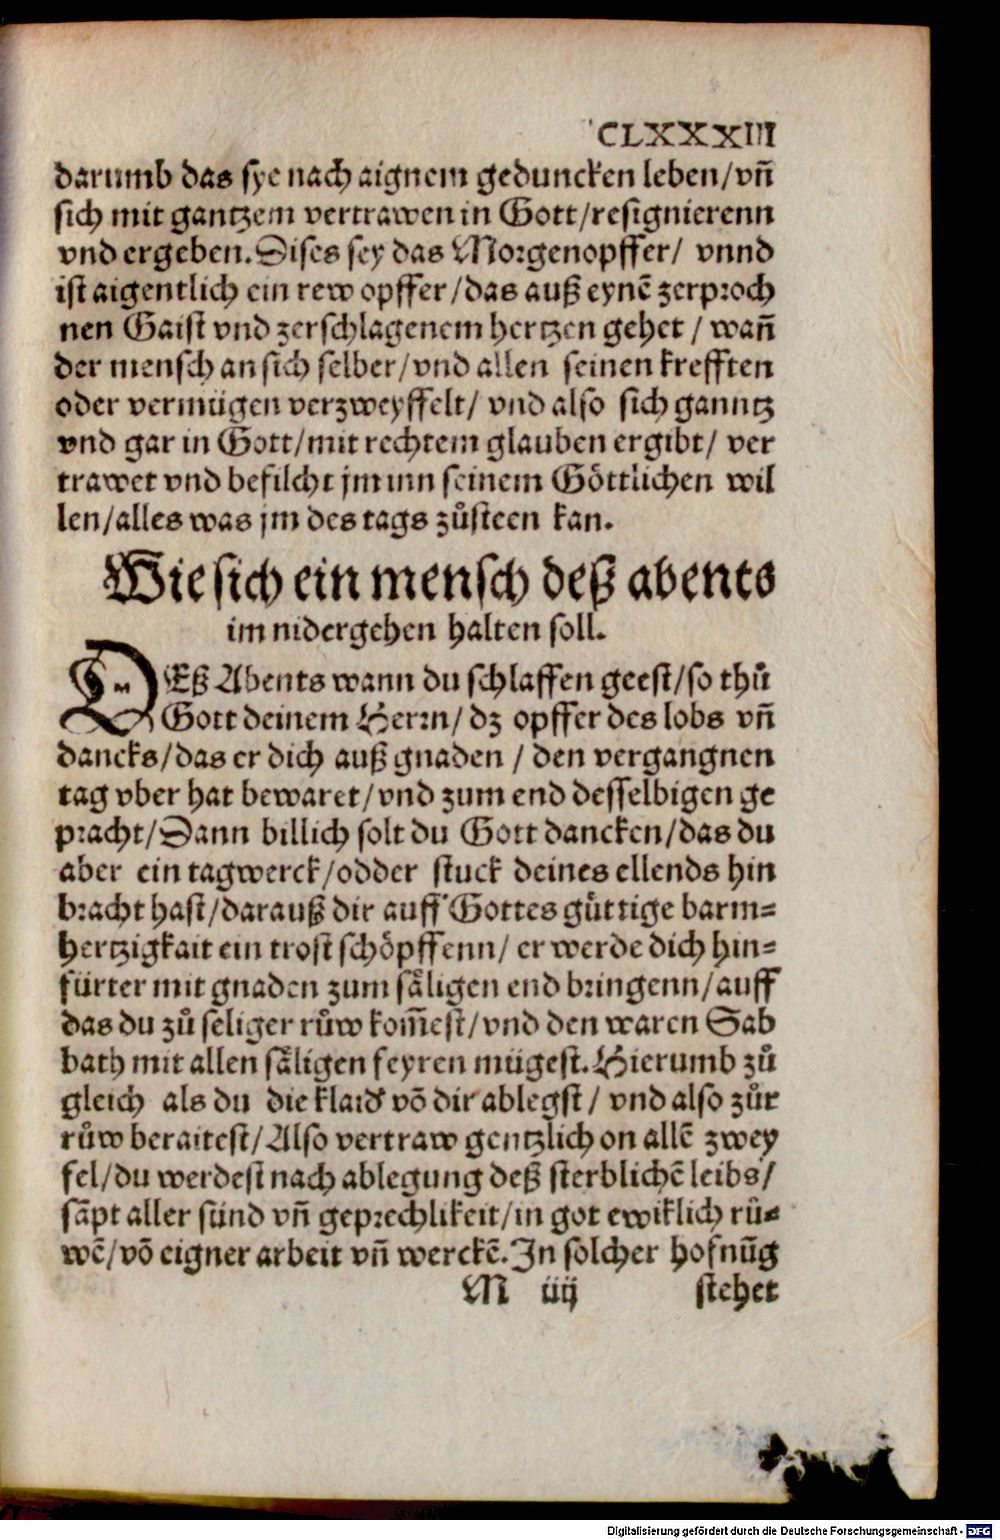 CLXXXIII
darumb das sye nach aignem geduncken leben/vñ
sich mit gantzem vertrawen in Gott/resignierenn
vnd ergeben. Dises sey das Morgenopffer/ vnnd
ist aigentlich ein rew opffer/das auß eynē zerproch
nen Gaist vnd zerschlagenem hertzen gehet / wañ
der mensch an sich selber/vnd allen seinen krefften
oder vermügen verzweyffelt/ vnd also sich ganntz
vnd gar in Gott/mit rechtem glauben ergibt/ ver
trawet vnd befilcht jm inn seinem Göttlichen wil
len/alles was jm des tags zůsteen kan.
Wie sich ein mensch deß abents
im nidergehen halten soll.
DEß Abents wann du schlaffen geest/so thů
Gott deinem Herrn/ dz opffer des lobs vñ
dancks/das er dich auß gnaden / den vergangnen
tag vber hat bewaret/vnd zum end desselbigen ge
pracht/Dann billich solt du Gott dancken/das du
aber ein tagwerck/odder stuck deines ellends hin
bracht hast/darauß dir auff Gottes güttige barm=
hertzigkait ein trost schöpffenn/ er werde dich hin=
fürter mit gnaden zum säligen end bringenn/auff
das du zů seliger růw kom̃est/vnd den waren Sab
bath mit allen säligen feyren mügest. Hierumb zů
gleich als du die klaid vō dir ablegst/ vnd also zůr
růw beraitest/Also vertraw gentzlich on allē zwey
fel/du werdest nach ablegung deß sterblichē leibs/
sāpt aller sünd vñ geprechlikeit/in got ewiklich rů=
wē/vō eigner arbeit vñ werckē. In solcher hofnūg
M iiij stehet
Digitalisierung gefördert durch die Deutsche Forschungsgemeinschaft - DFG